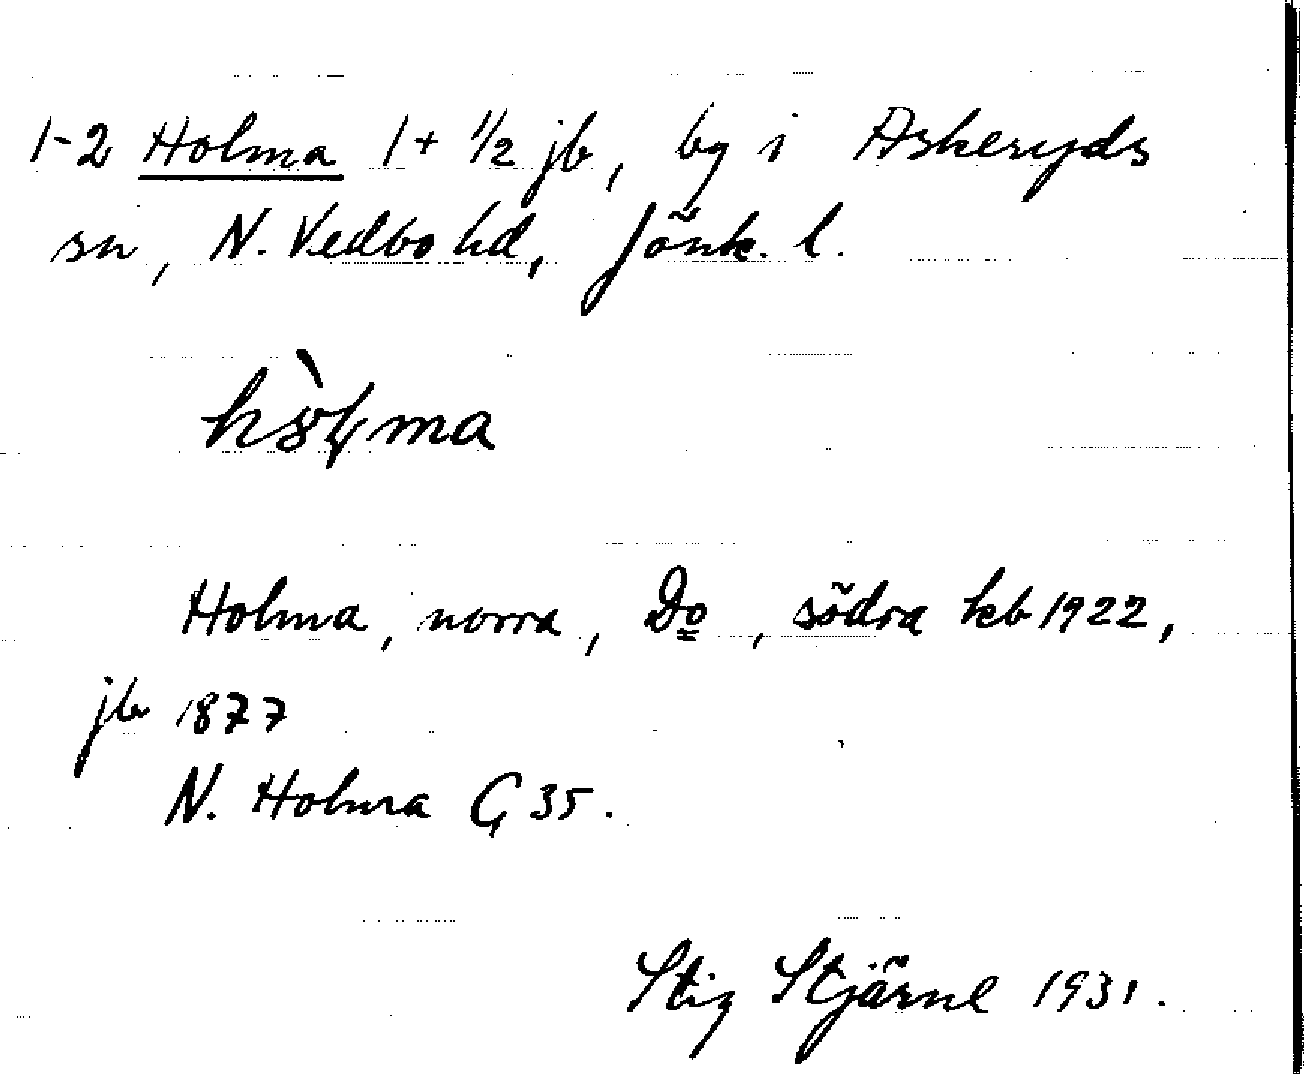 1-2 Holma 1 + 1/2 jb, by i Askeryds
sn, N. Vedbo hd, Jönk. l.
Holma, norra, Do, södra kb 1922,
jb 1877
N. Holma G 35.
Stig Stjärne 1931.